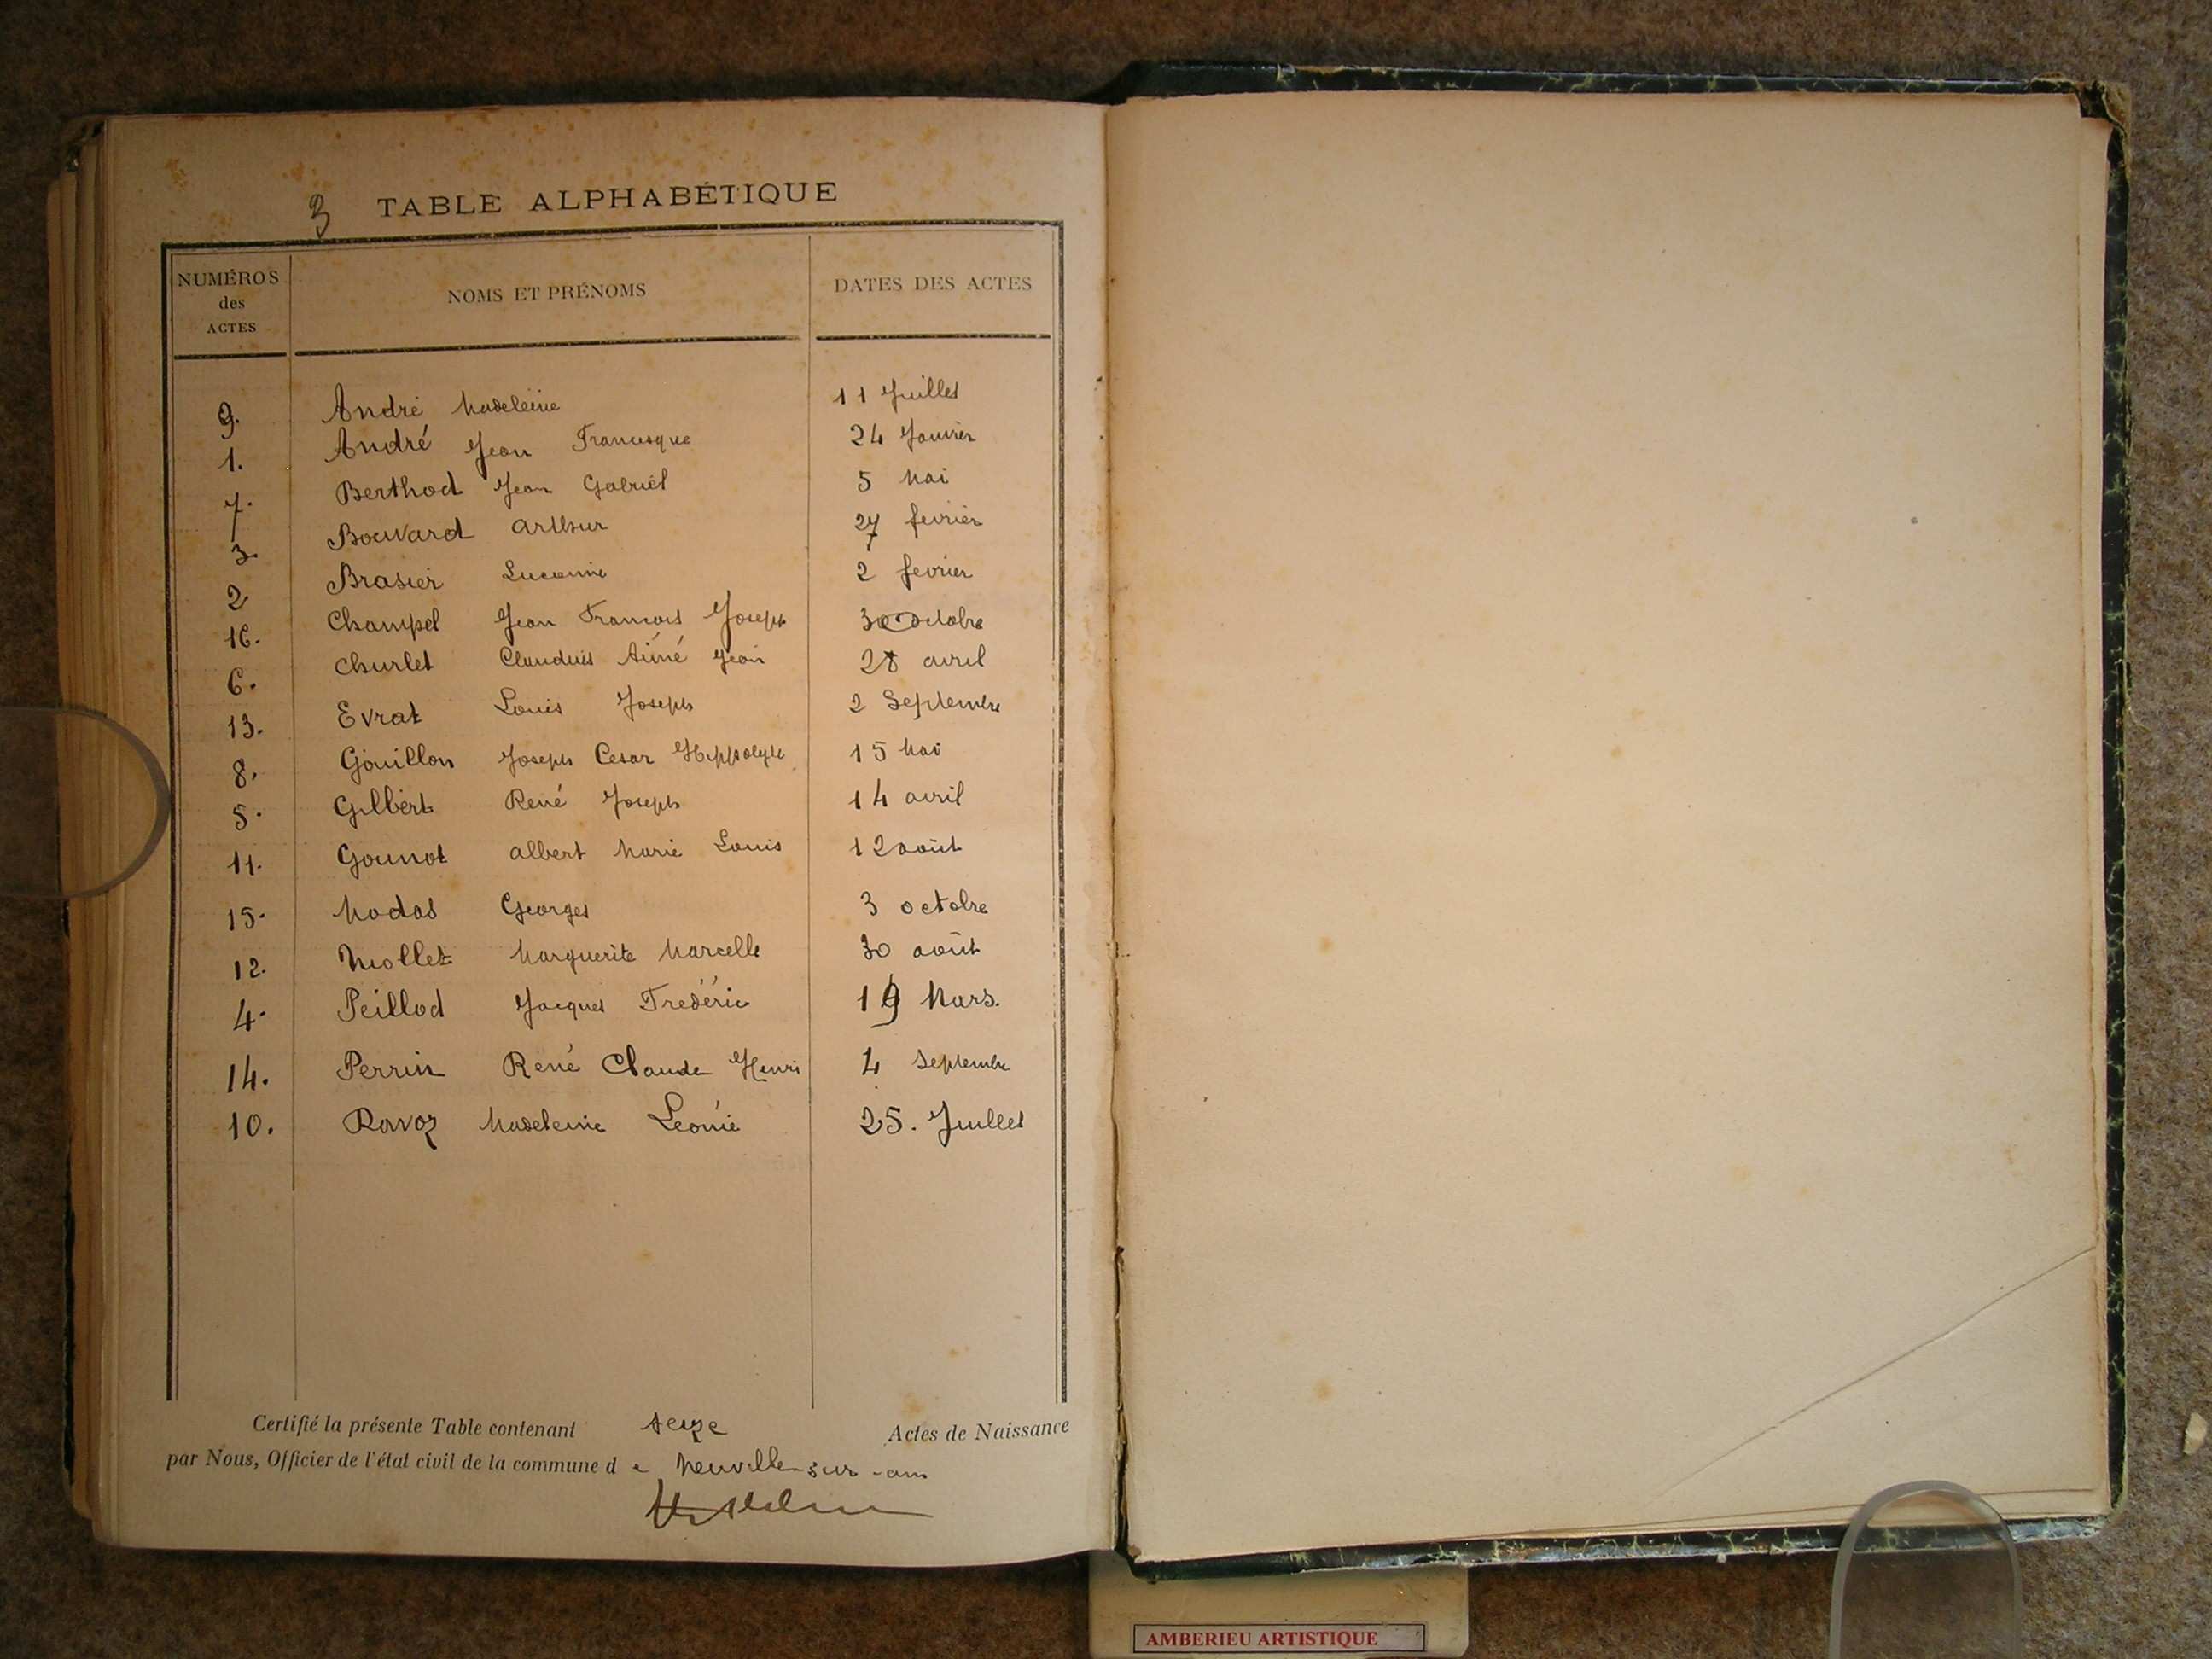 3 TABLE ALPHABÉTIQUE
NUMÉROS des ACTES NOMS ET PRÉNOMS DATES DES ACTES
9. André Madeleine 11 Juillet
1. André Jean Francisque 24 Janvier
7. Berthod Jean Gabriel 5 Mai
3. Bouvard Arthur 27 fevrier
2 Brasier Lucienne 2 fevrier
16. Champel Jean Francois Joseph 30 octobre
6. Churlet Claudius Aimé Jean 28 avril
13. Evrat Louis Joseph 2 Septembre
8. Gouillon Joseph Cesar Hippolyte 15 Mai
5. Gilbert René Joseph 14 avril
11. Gounot Albert Marie Louis 12 août
15. Modas Georges 3 octobre
12. Mollet Marguerite Marcelle 30 août
4. Peillod Jacques Fredéric 19 Mars.
14. Perrin René Claude Henri 4 Septembre
10. Ravoz Madeleine Léonie 25. Juillet
Certifié la présente Table contenant seize Actes de Naissance
par Nous, Officier de l'état civil de la commune d e Neuville-sur-ain
AMBERIEU ARTISTIQUE